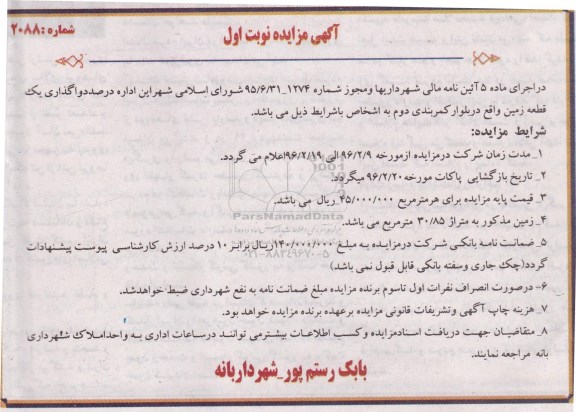 آگهی مزایده نوبت اول
شماره :۲۰۸۸
در اجرای ماده ۵ آئین نامه مالی شهرداریها و مجوز شماره ۱۲۷۴_۹۵/۶/۳۱ شورای اسلامی شهر این اداره درصدد واگذاری یک
قطعه زمین واقع در بلوار کمربندی دوم به اشخاص با شرایط ذیل می باشد.
شرایط مزایده:
۱_مدت زمان شرکت در مزایده از مورخه ۹۶/۲/۹ الی ۹۶/۲/۱۹ اعلام می گردد.
۲_ تاریخ بازگشایی پاکات مورخه ۹۶/۲/۲۰ میگردد.
۳_ قیمت پایه مزایده برای هر مترمربع ۴۵/۰۰۰/۰۰۰ ریال می باشد.
۴_زمین مذکور به متراژ ۳۰/۸۵ مترمربع می باشد.
۵_ضمانت نامه بانکی شرکت در مزایده به مبلغ ۱۴۰/۰۰۰/۰۰۰ ریال برابر ۱۰ درصد ارزش کارشناسی پیوست پیشنهادات
گردد(چک جاری وسفته بانکی قابل قبول نمی باشد)
۶- درصورت انصراف نفرات اول تاسوم برنده مزایده مبلغ ضمانت نامه به نفع شهرداری ضبط خواهدشد.
۷_ هزینه چاپ آگهی وتشریفات قانونی مزایده برعهده برنده مزایده خواهد بود.
۸_ متقاضیان جهت دریافت اسناد مزایده وکسب اطلاعات بیشترمی توانند در ساعات اداری به واحد املاک شهرداری
بانه مراجعه نمایند.
بابک رستم پور_شهردار بانه
ParsNamadData
۰۲۱-۸۸۳۴۹۶۷۰-۵